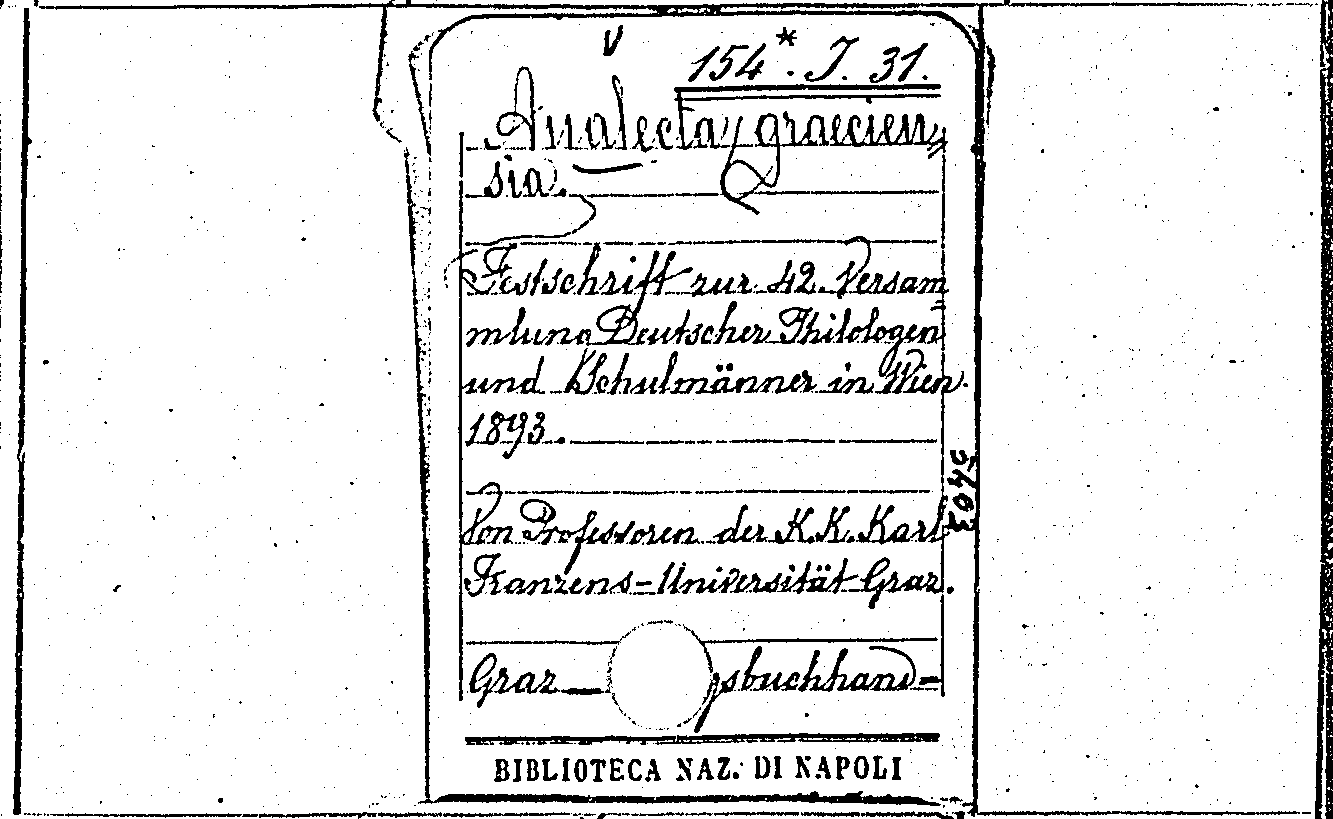 V
154*. J. 31.
Analecta graecien=
sia.
Festschrift zur 42. Versam=
mlung Deutscher Philologen
und Schulmänner in Wien.
1893.
Von Professoren der K.K. Karl
Franzens-Universität Graz.
Graz — gsbuchhand-
BIBLIOTECA NAZ. DI NAPOLI